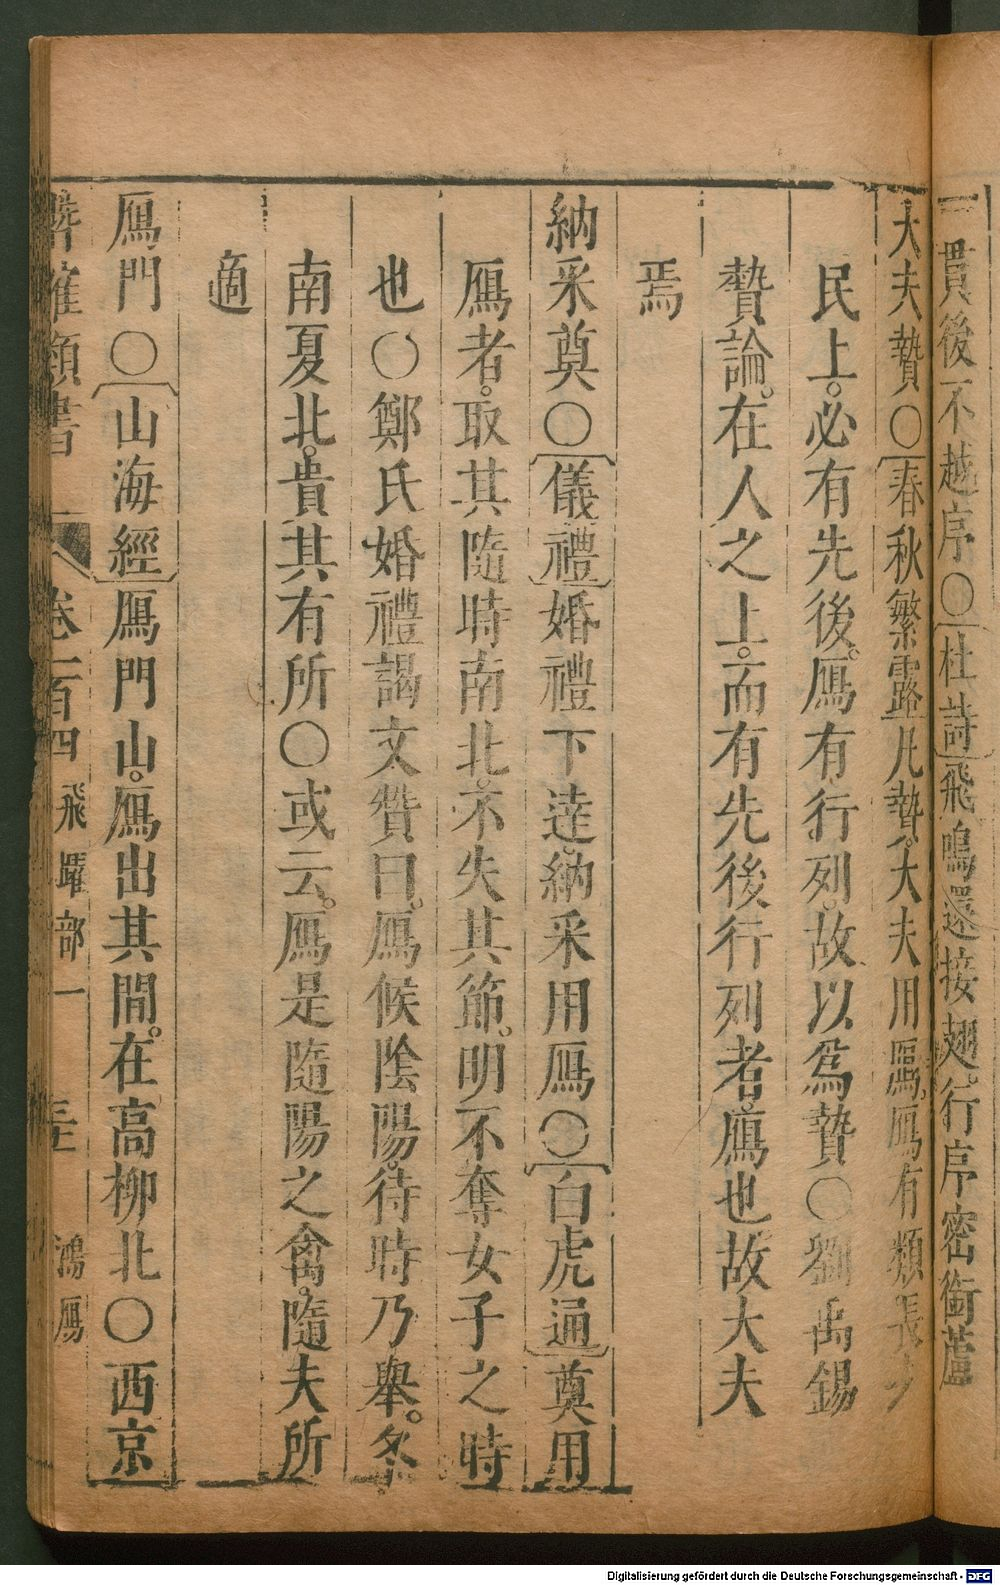 一貫後不越序○杜詩飛鳴還接翅。行序密銜蘆
大夫贄○春秋繁露凡贄。大夫用鴈。鴈有類長
民上。必有先後。鴈有行列。故以爲贄○劉禹錫
贄論。在人之上。而有先後行列者。鴈也故大夫
焉
納采奠○儀禮婚禮下逹。納采用鴈○白虎通奠用
鴈者。取其隨時南北。不失其節。明不奪女子之時
也○鄭氏婚禮謁文贊曰。鴈候陰陽。待時乃舉。冬
南夏北。貴其有所○或云。鴈是隨陽之禽。隨夫所
適
鴈門○山海經鴈門山。鴈出其間。在高柳北○西京
類書 卷一百四 飛躍部一 鴻鴈
Digitalisierung gefördert durch die Deutsche Forschungsgemeinschaft - DFG